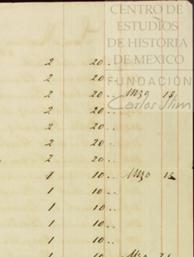 CENTRO DE
ESTUDIOS
DE HISTORIA
DE MEXICO
FUNDACIÓN
Carlos Slim
2 20..
2 20..
2 20.. Mzo 13
2 20..
2 20..
2 20..
2 20..
1 10.. Mzo 13
1 10..
1 10..
1 10..
1 10..
1 10..